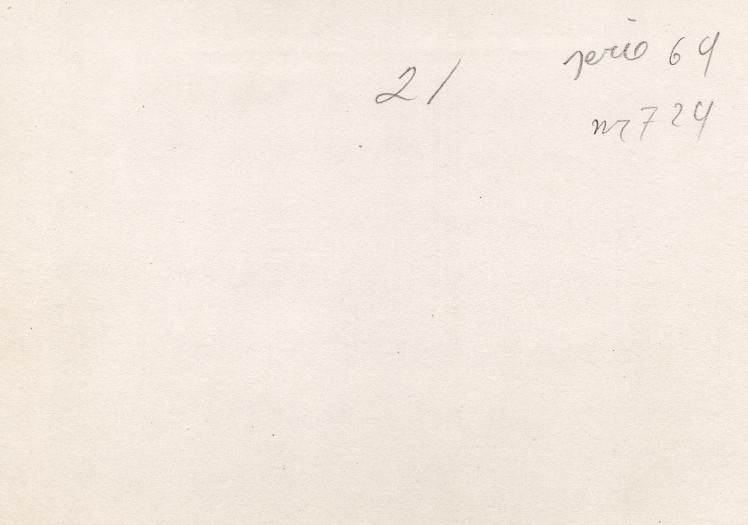 21
serio 64
nr 724